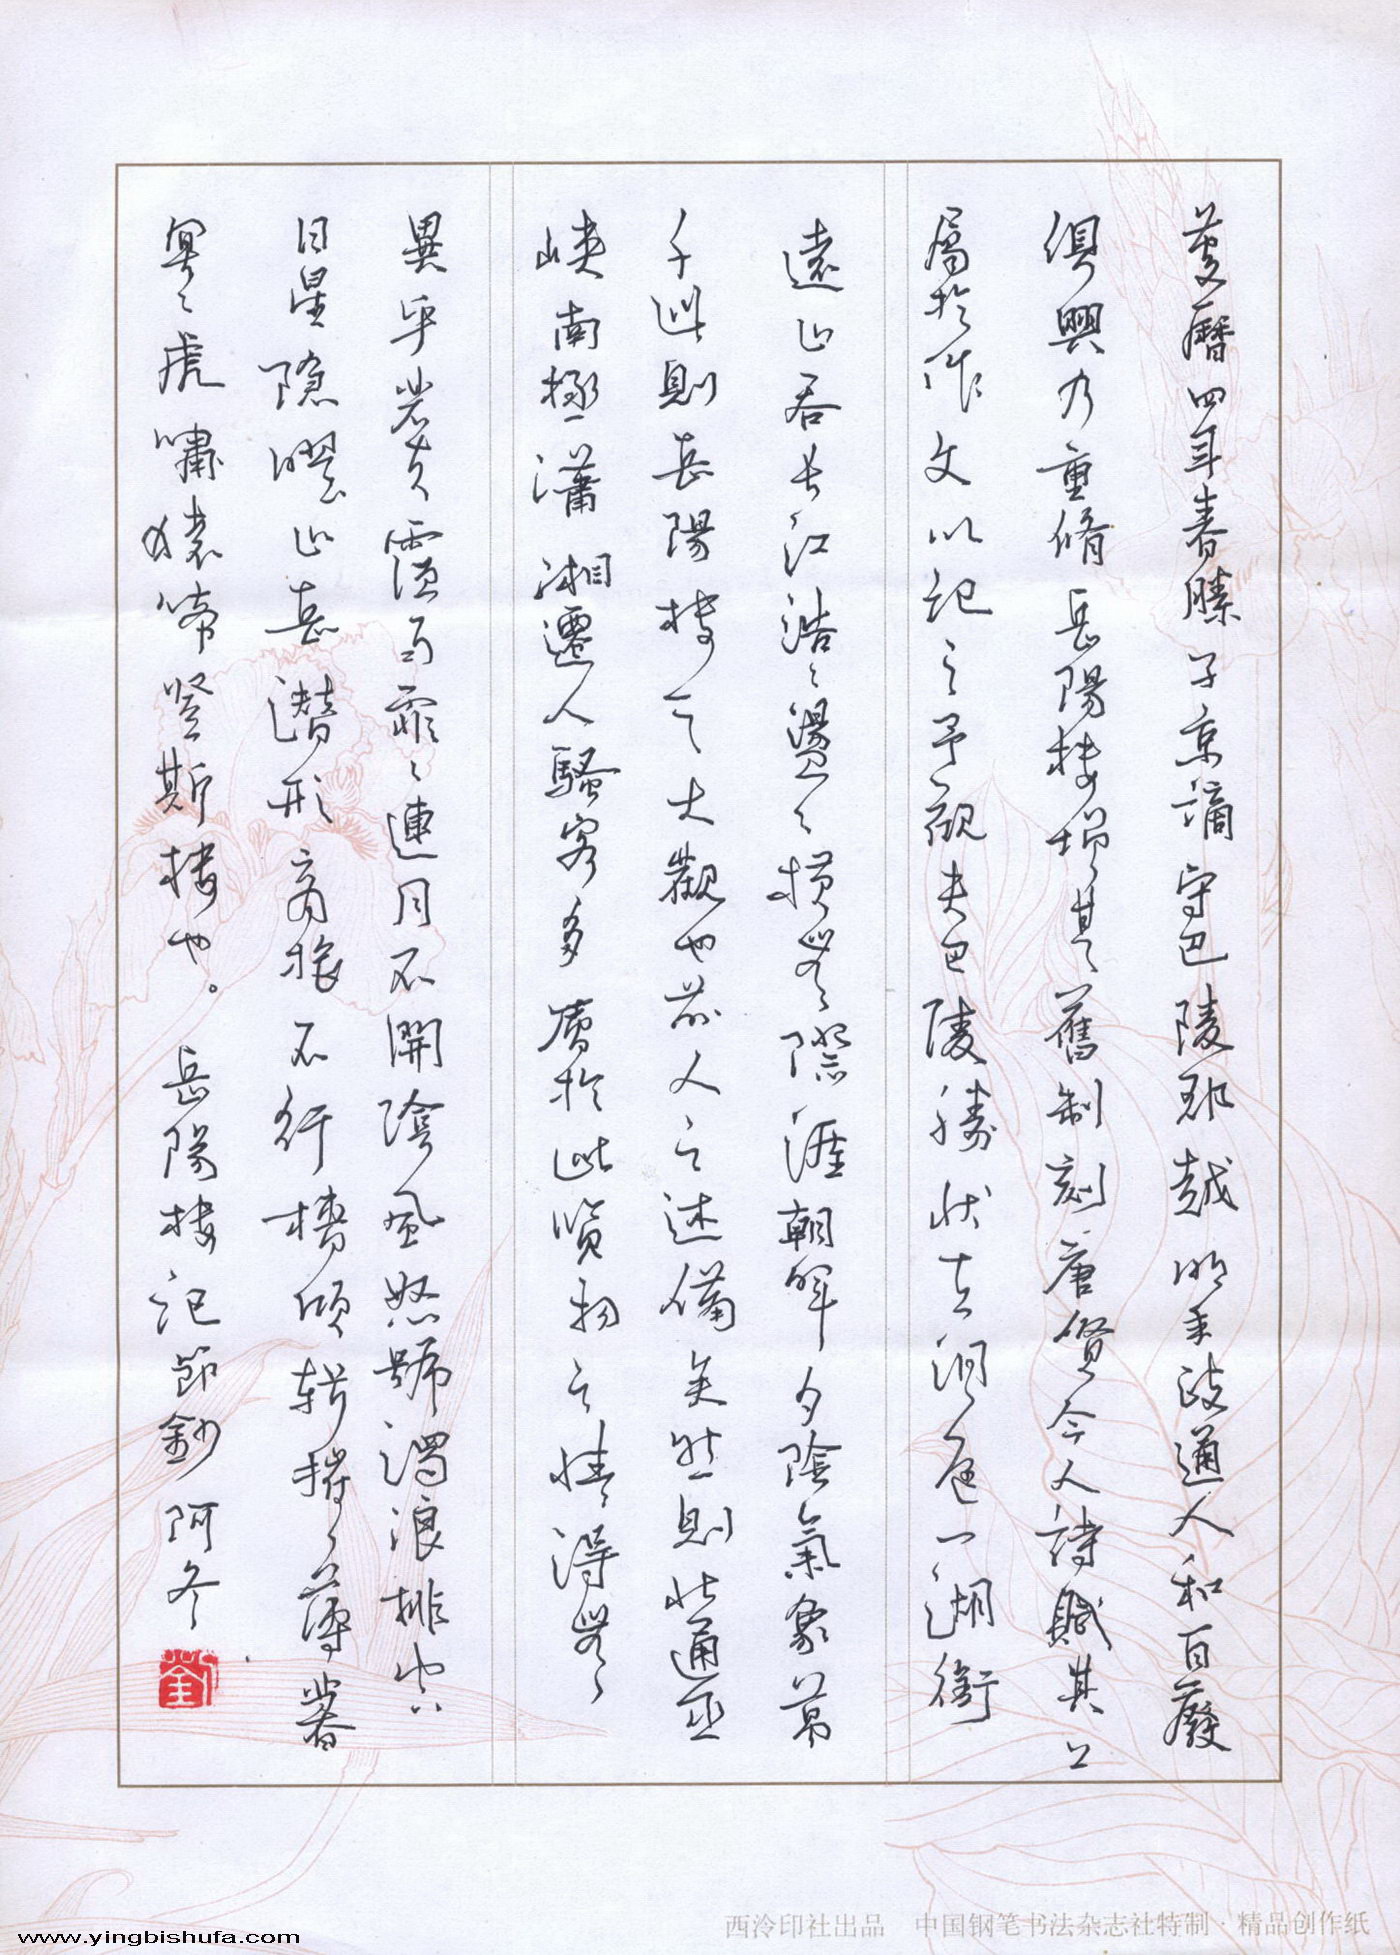 慶曆四年春滕子京謫守巴陵郡越明年政通人和百廢
俱興乃重脩岳陽樓增其舊制刻唐賢今人詩賦其上
屬於作文以記之予觀夫巴陵勝狀在洞庭一湖銜
遠山吞長江浩〻蕩〻橫無際涯朝暉夕陰氣象萬
千此則岳陽樓之大觀也前人之述備矣然則北通巫
峽南極瀟湘遷人騷客多會於此覽物之情得無
異乎若夫霪雨霏〻連月不開陰風怒號濁浪排空
日星隱曜山岳潛形商旅不行檣傾楫摧薄暮
冥〻虎嘯猿啼登斯樓也。岳陽樓記節鈔 阿冬
劉
西泠印社出品 中国钢笔书法杂志社特制·精品创作纸
www.yingbishufa.com